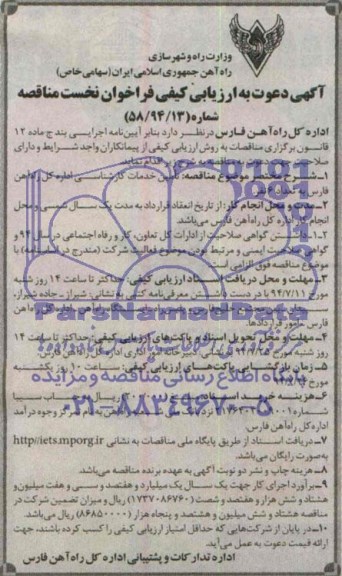 وزارت راه و شهرسازی
راه آهن جمهوری اسلامی ایران (سهامی خاص)
آگهی دعوت به ارزیابی کیفی فراخوان نخست مناقصه
شماره (۵۸/۹۴/۱۳)
اداره کل راه آهن فارس در نظر دارد بنابر آیین‌نامه اجرایی بند ج ماده ۱۲
قانون برگزاری مناقصات به روش ارزیابی کیفی از پیمانکاران واجد شرایط و دارای
۱- شرح مختصر موضوع مناقصه: تأمین خدمات کارشناسی اداره کل راه آهن
فارس
۲- مدت و محل انجام کار: از تاریخ انعقاد قرارداد به مدت یک سال شمسی و محل
انجام کار اداره کل راه آهن فارس می‌باشد.
گواهی صلاحیت از ادارات کل تعاون، کار و رفاه اجتماعی در سال ۹۴ و
گواهی صلاحیت ایمنی و مرتبط بودن موضوع فعالیت شرکت (مندرج در اساسنامه) با
موضوع مناقصه فوق الزامی است
۳- مهلت و محل دریافت اسناد ارزیابی کیفی: حداکثر تا ساعت ۱۴ روز شنبه
مورخ ۹۴/۷/۱۱ با در دست داشتن معرفی‌نامه کتبی به نشانی: شیراز - جاده شیراز،
ParsNamadData
فارس - امور قراردادها.
۴- مهلت و محل تحویل اسناد و پاکت‌های ارزیابی کیفی: حداکثر تا ساعت ۱۴
روز شنبه مورخ ۹۴/۷/۲۵ به نشانی: دبیرخانه امور اداری اداره کل راه آهن فارس.
۵- زمان بازگشایی پاکت‌های ارزیابی کیفی: ساعت ۱۰ روز یکشنبه
پایگاه اطلاع رسانی مناقصه و مزایده
۶- هزینه خرید اسناد
۰۲۱-۸۸۳۴۹۶۷۰-۵
اداره کل راه آهن فارس.
۷- دریافت اسناد از طریق پایگاه ملی مناقصات به نشانی http//iets.mporg.ir
به صورت رایگان می‌باشد.
۸- هزینه چاپ و نشر دو نوبت آگهی به عهده برنده مناقصه می‌باشد.
۹- برآورد اجرای کار جهت یک سال یک میلیارد و هفتصد و سی و هفت میلیون و
هشتاد و شش هزار و هفتصد و شصت (۱۷۳۷۰۸۶۷۶۰) ریال و میزان تضمین شرکت در
مناقصه هشتاد و شش میلیون و هشتصد و پنجاه هزار (۸۶۸۵۰۰۰۰) ریال می‌باشد.
۱۰- در پایان از شرکت‌هایی که حداقل امتیاز ارزیابی کیفی را کسب کرده باشند، جهت
ارائه قیمت دعوت به عمل می‌آید.
اداره تدارکات و پشتیبانی اداره کل راه آهن فارس